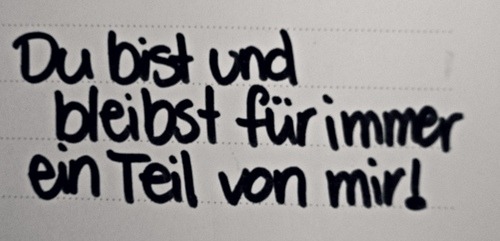 Du bist und
bleibst für immer
ein Teil von mir!